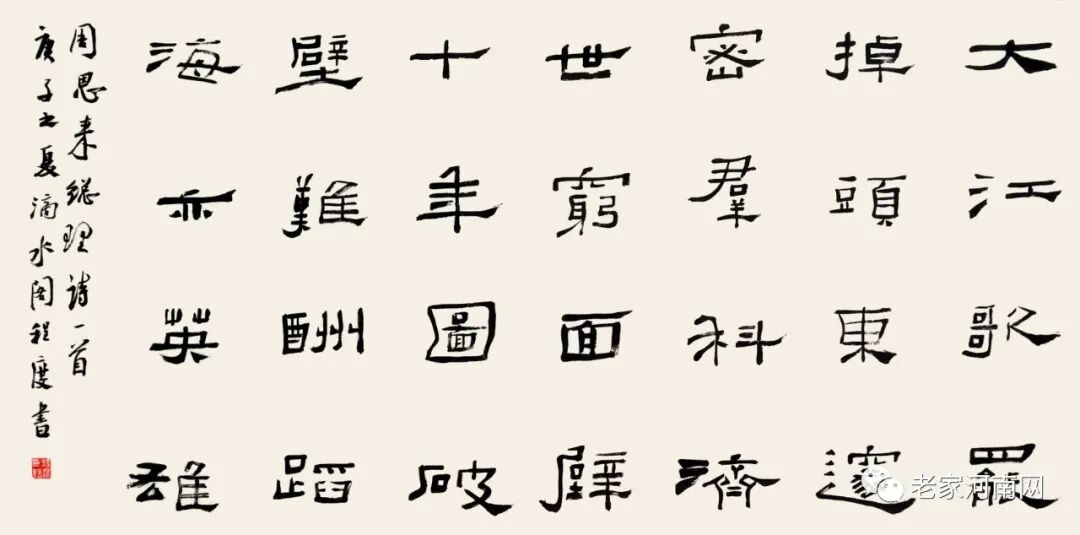 大江歌罷
掉頭東邃
密羣科濟
世窮面壁
十年圖破
壁難酬蹈
海亦英雄
周恩来總理詩一首
庚子之夏滴水阁程度書
老家河南网